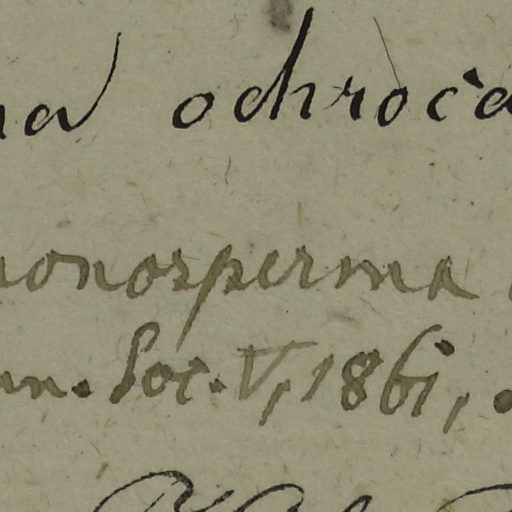 na ochroca
monosperma
nn. Soc. V, 1861,